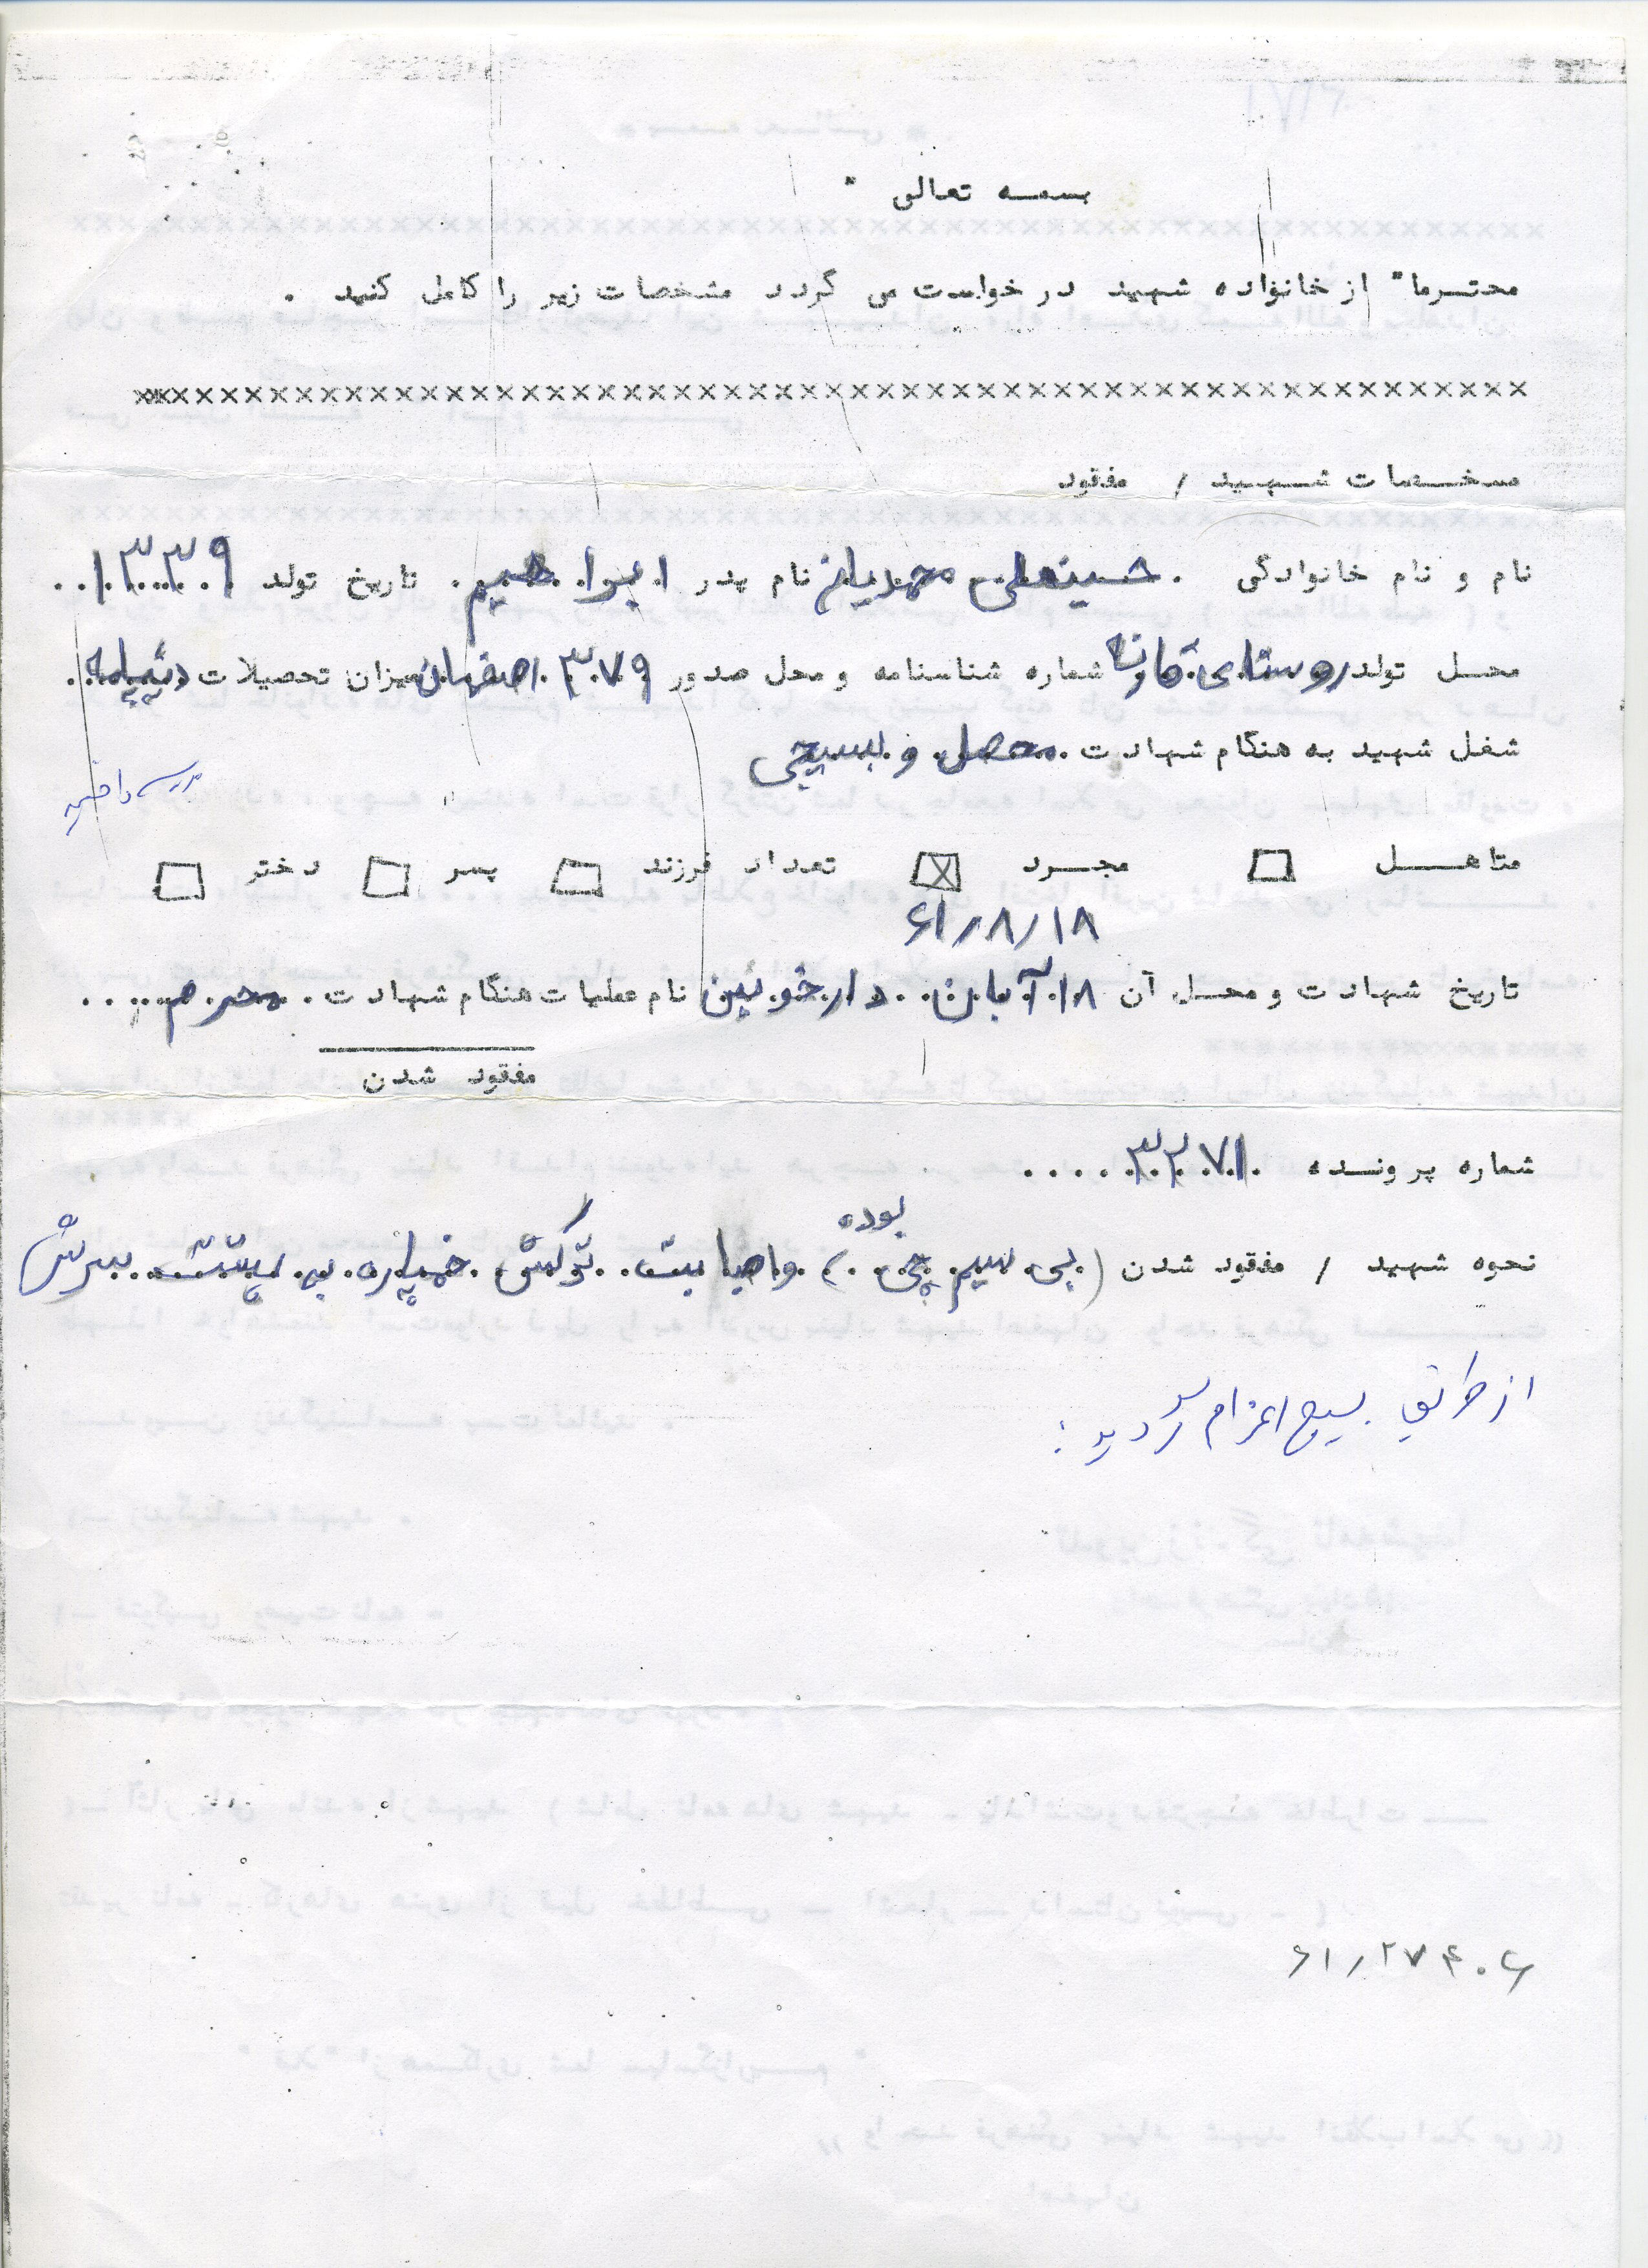 بسمه تعالی "
محترما" از خانواده شهید درخواست می گردد مشخصات زیر را کامل کنید .
××××××××××××××××××××××××××××××××××××××××××××××××××××××××
مشخصات شهید / مفقود
نام و نام خانوادگی . حسینعلی محمدیان نام پدر ابراهیم . تاریخ تولد ۱۳۳۹ . .
محل تولد روستای شماره شناسنامه و محل صدور ۳۷۹ اصفهان میزان تحصیلات دیپلمه .
شغل شهید به هنگام شهادت . محصل و بسیجی
متاهل □ مجرد ☒ تعداد فرزند □ پسر □ دختر □
۶۱/۸/۱۸
تاریخ شهادت و محل آن ۱۸ آبان . . دارخوئین نام عملیات هنگام شهادت . محرم . . . .
مفقود شدن
شماره پرونده . ۳۲۷۱ . . . . .
بوده
نحوه شهید / مفقود شدن (بی سیم چی . .) واصابت . ترکش خمپاره به پشت سرش
از طریق بسیج اعزام گردید :
۶۱/۲۷۴۰۶